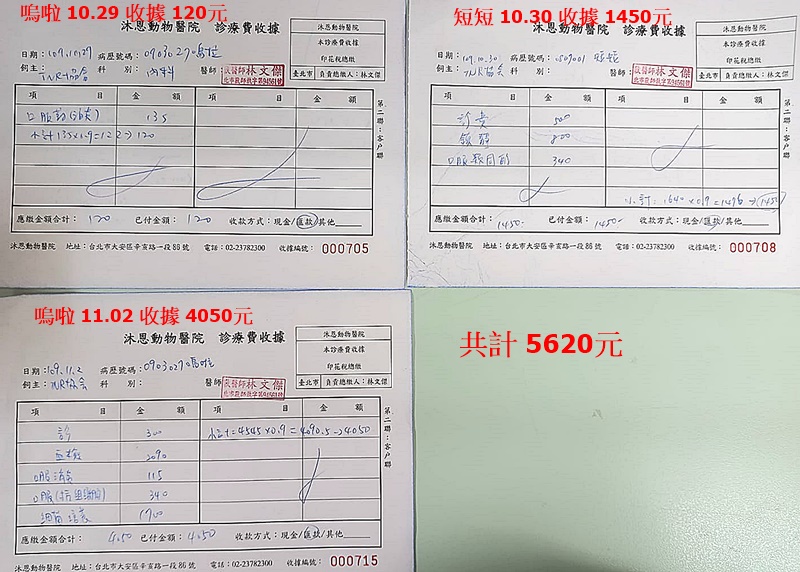 嗚啦 10.29 收據 120元
沐恩動物醫院 診療費收據
沐恩動物醫院
本診療費收據
印花稅總繳
臺北市 負責總繳人:林文傑
日期:109.10.29 病歷號碼:0903027嗚啦
飼主:TNR協會 科別:內科 醫師:
獸醫師林文傑
項 目 金 額 項 目 金 額
135
小計135x0.9=122→120
應繳金額合計:120 已付金額:120 收款方式:現金/匯款/其他
沐恩動物醫院 地址:台北市大安區辛亥路一段86號 電話:02-23782300 收據編號:000705
第二聯:客戶聯
短短 10.30 收據 1450元
沐恩動物醫院 診療費收據
沐恩動物醫院
本診療費收據
印花稅總繳
臺北市 負責總繳人:林文傑
日期:109.10.30 病歷號碼: 短短
飼主:TNR協會 科別: 醫師:
獸醫師林文傑
項 目 金 額 項 目 金 額
診 500
800
340
小計:1640x0.9=1476→1450
應繳金額合計:1450- 已付金額:1450- 收款方式:現金/匯款/其他
沐恩動物醫院 地址:台北市大安區辛亥路一段86號 電話:02-23782300 收據編號:000708
第二聯:客戶聯
嗚啦 11.02 收據 4050元
沐恩動物醫院 診療費收據
沐恩動物醫院
本診療費收據
印花稅總繳
臺北市 負責總繳人:林文傑
日期:109.11.2 病歷號碼:0903027嗚啦
飼主:TNR協會 科別: 醫師:
獸醫師林文傑
項 目 金 額 項 目 金 額
診 300 小計=4545x0.9=4090.5→4050
血檢 2090
口服消炎 115
340
細菌培養 1700
應繳金額合計:4050 已付金額:4050 收款方式:現金/匯款/其他
沐恩動物醫院 地址:台北市大安區辛亥路一段86號 電話:02-23782300 收據編號:000715
第二聯:客戶聯
共計 5620元